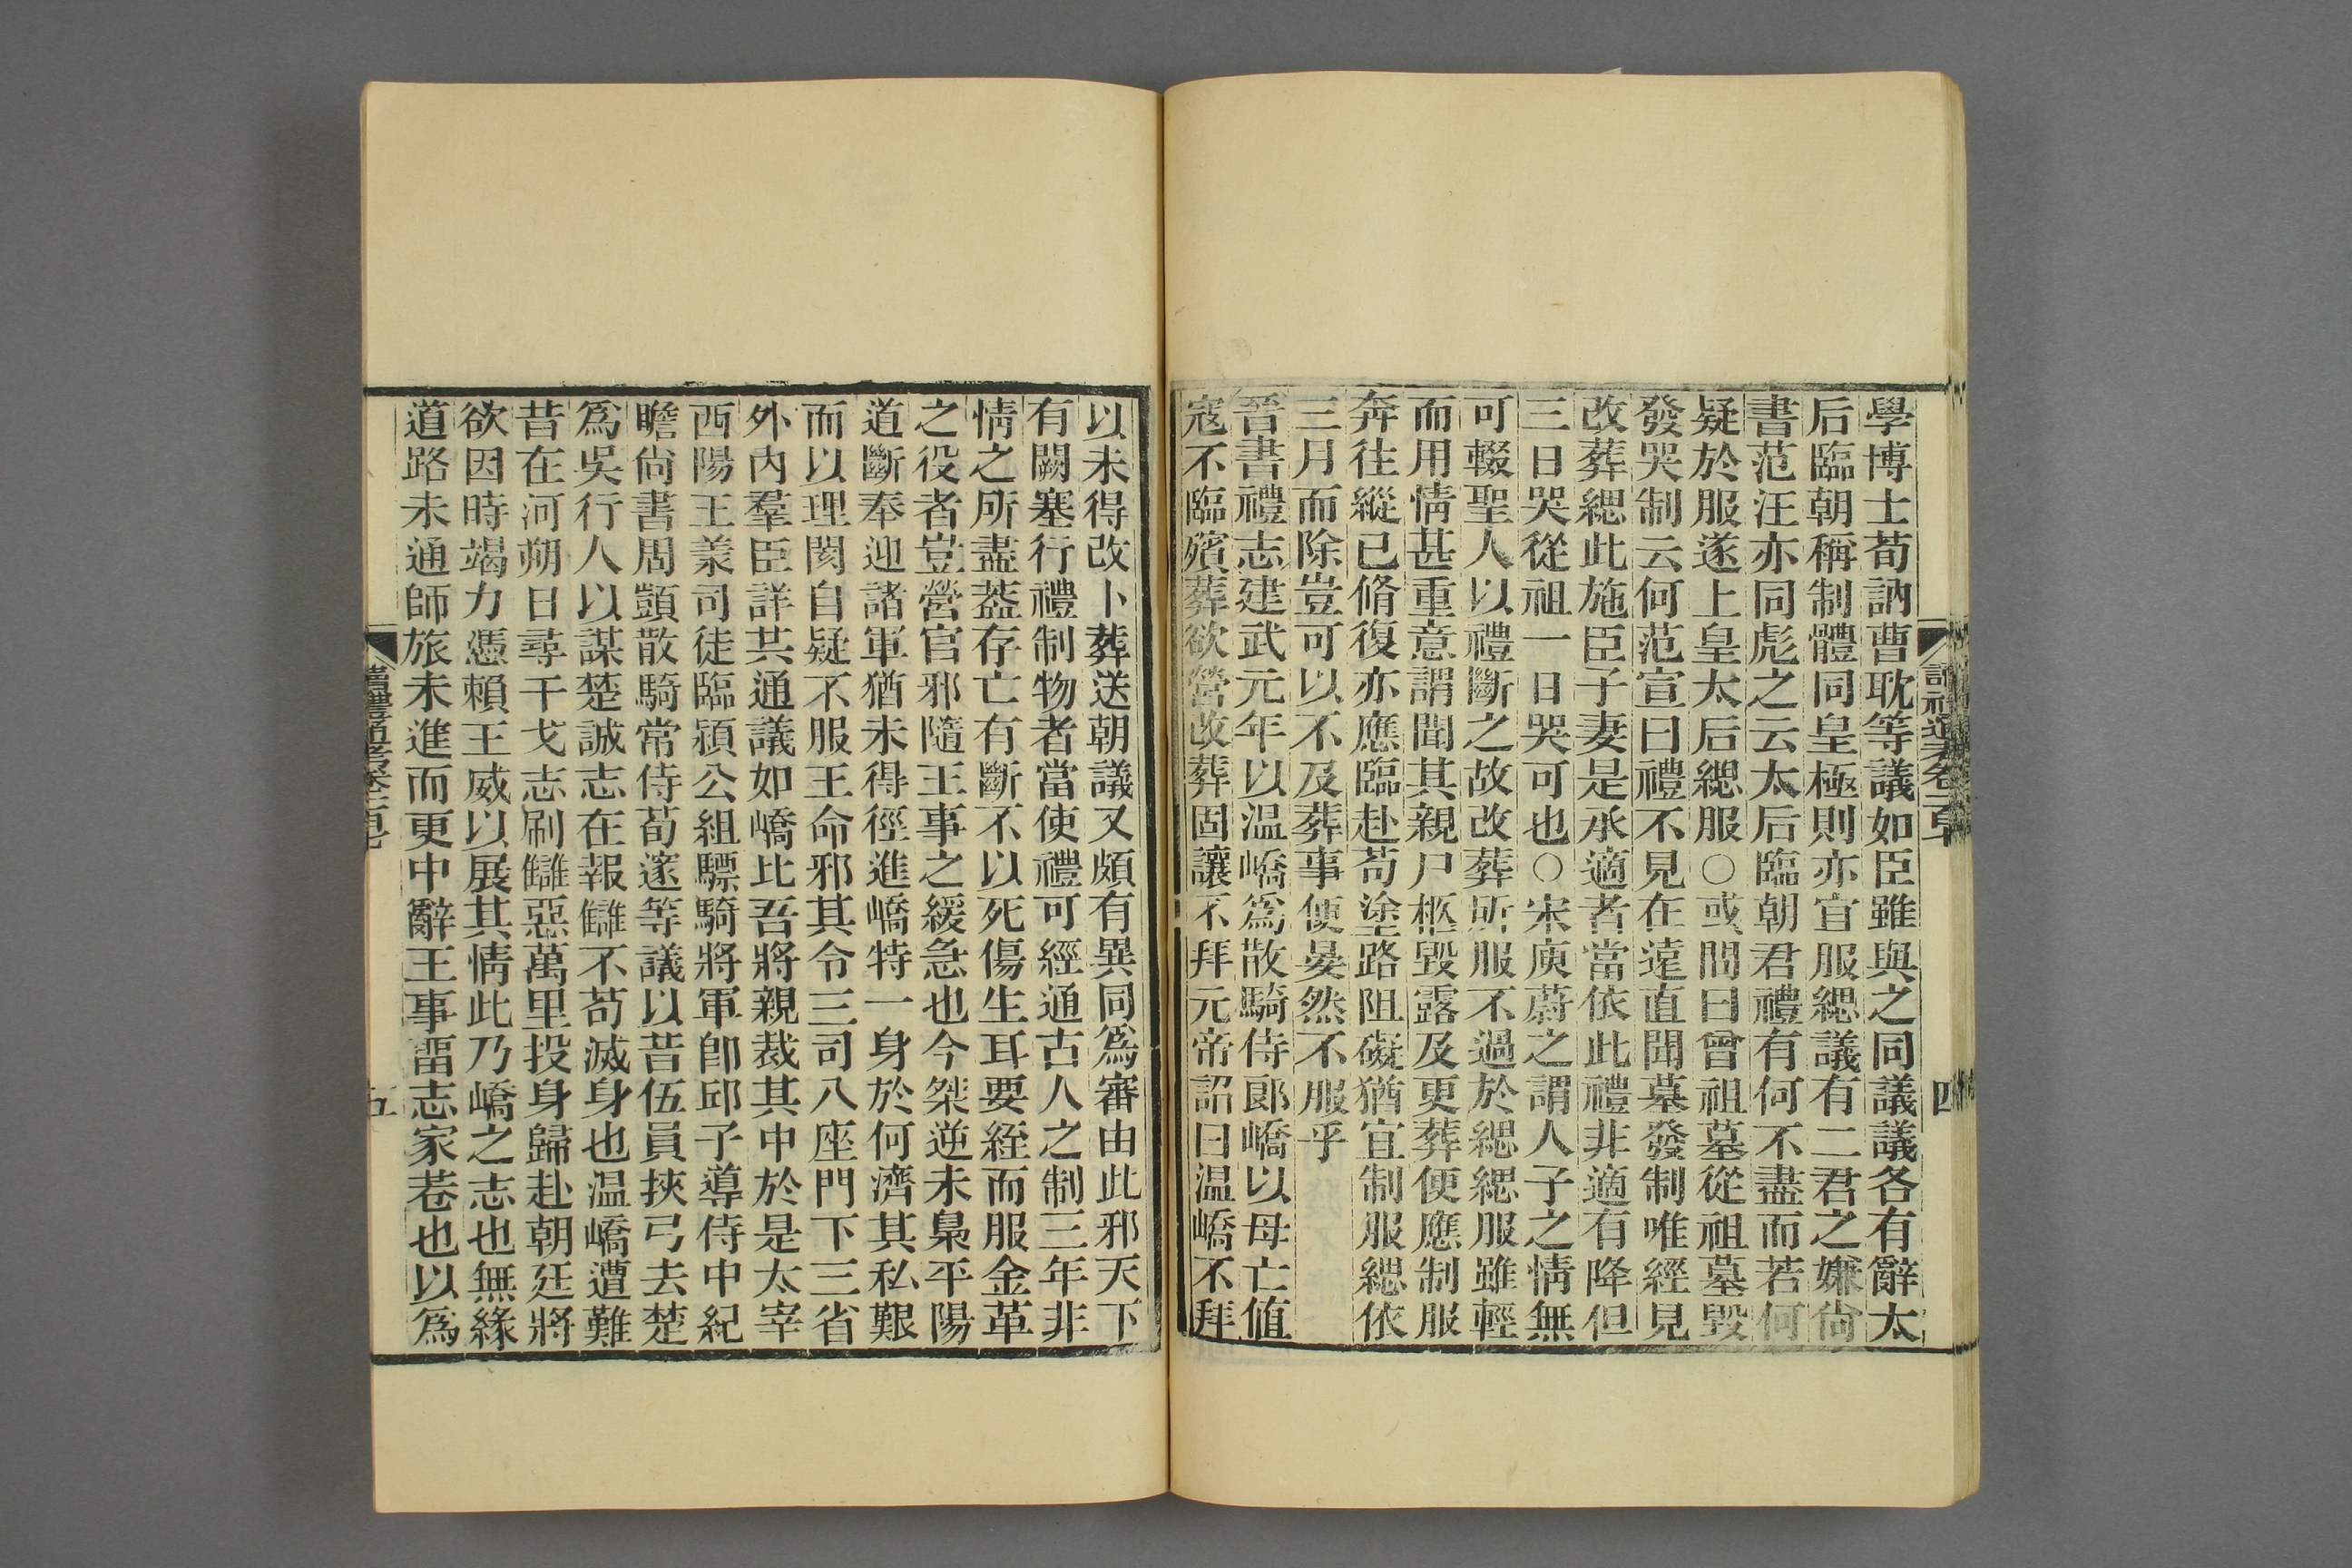 學博士荀訥曹耽等議如臣雖與之同議議各有辭太
后臨朝稱制體同皇極則亦宜服緦議有二君之嫌尙
書范汪亦同彪之云太后臨朝君禮有何不盡而若何
疑於服遂上皇太后緦服○或問曰曾祖墓從祖墓毀
發哭制云何范宣曰禮不見在遠直聞墓發制唯經見
改葬緦此施臣子妻是承適者當依此禮非適有降但
三日哭從祖一日哭可也○宋庾蔚之謂人子之情無
可輟聖人以禮斷之故改葬所服不過於緦緦服雖輕
而用情甚重意謂聞其親尸柩毀露及更葬便應制服
奔往縱已脩復亦應臨赴苟塗路阻礙猶宜制服緦依
三月而除豈可以不及葬事便晏然不服乎
晉書禮志建武元年以温嶠爲散騎侍郎嶠以母亡值
寇不臨殯葬欲營改葬固讓不拜元帝詔曰温嶠不拜
四
以未得改卜葬送朝議又頗有異同爲審由此邪天下
有闕塞行禮制物者當使禮可經通古人之制三年非
情之所盡葢存亡有斷不以死傷生耳要絰而服金革
之役者豈營官邪隨王事之緩急也今桀逆未梟平陽
道斷奉迎諸軍猶未得徑進嶠特一身於何濟其私艱
而以理閡自疑不服王命邪其令三司八座門下三省
外內羣臣詳共通議如嶠比吾將親裁其中於是太宰
西陽王羕司徒臨潁公組驃騎將軍卽邱子導侍中紀
瞻尙書周顗散騎常侍荀邃等議以昔伍員挾弓去楚
爲吳行人以謀楚誠志在報讎不苟滅身也温嶠遭難
昔在河朔日尋干戈志刷讎惡萬里投身歸赴朝廷將
欲因時竭力憑賴王威以展其情此乃嶠之志也無緣
道路未通師旅未進而更中辭王事畱志家巷也以爲
五